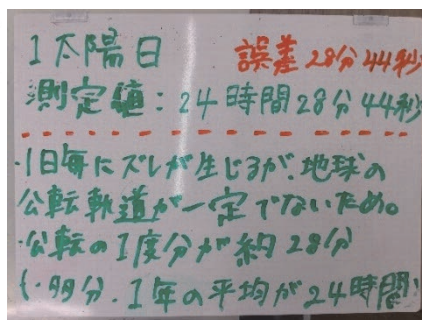 1太陽日
誤差28分44秒
測定値:24時間28分44秒
・1日毎にズレが生じるが、地球の
公転軌道が一定でないため。
・公転の1度分が約28分
(・多分、1年の平均が24時間)